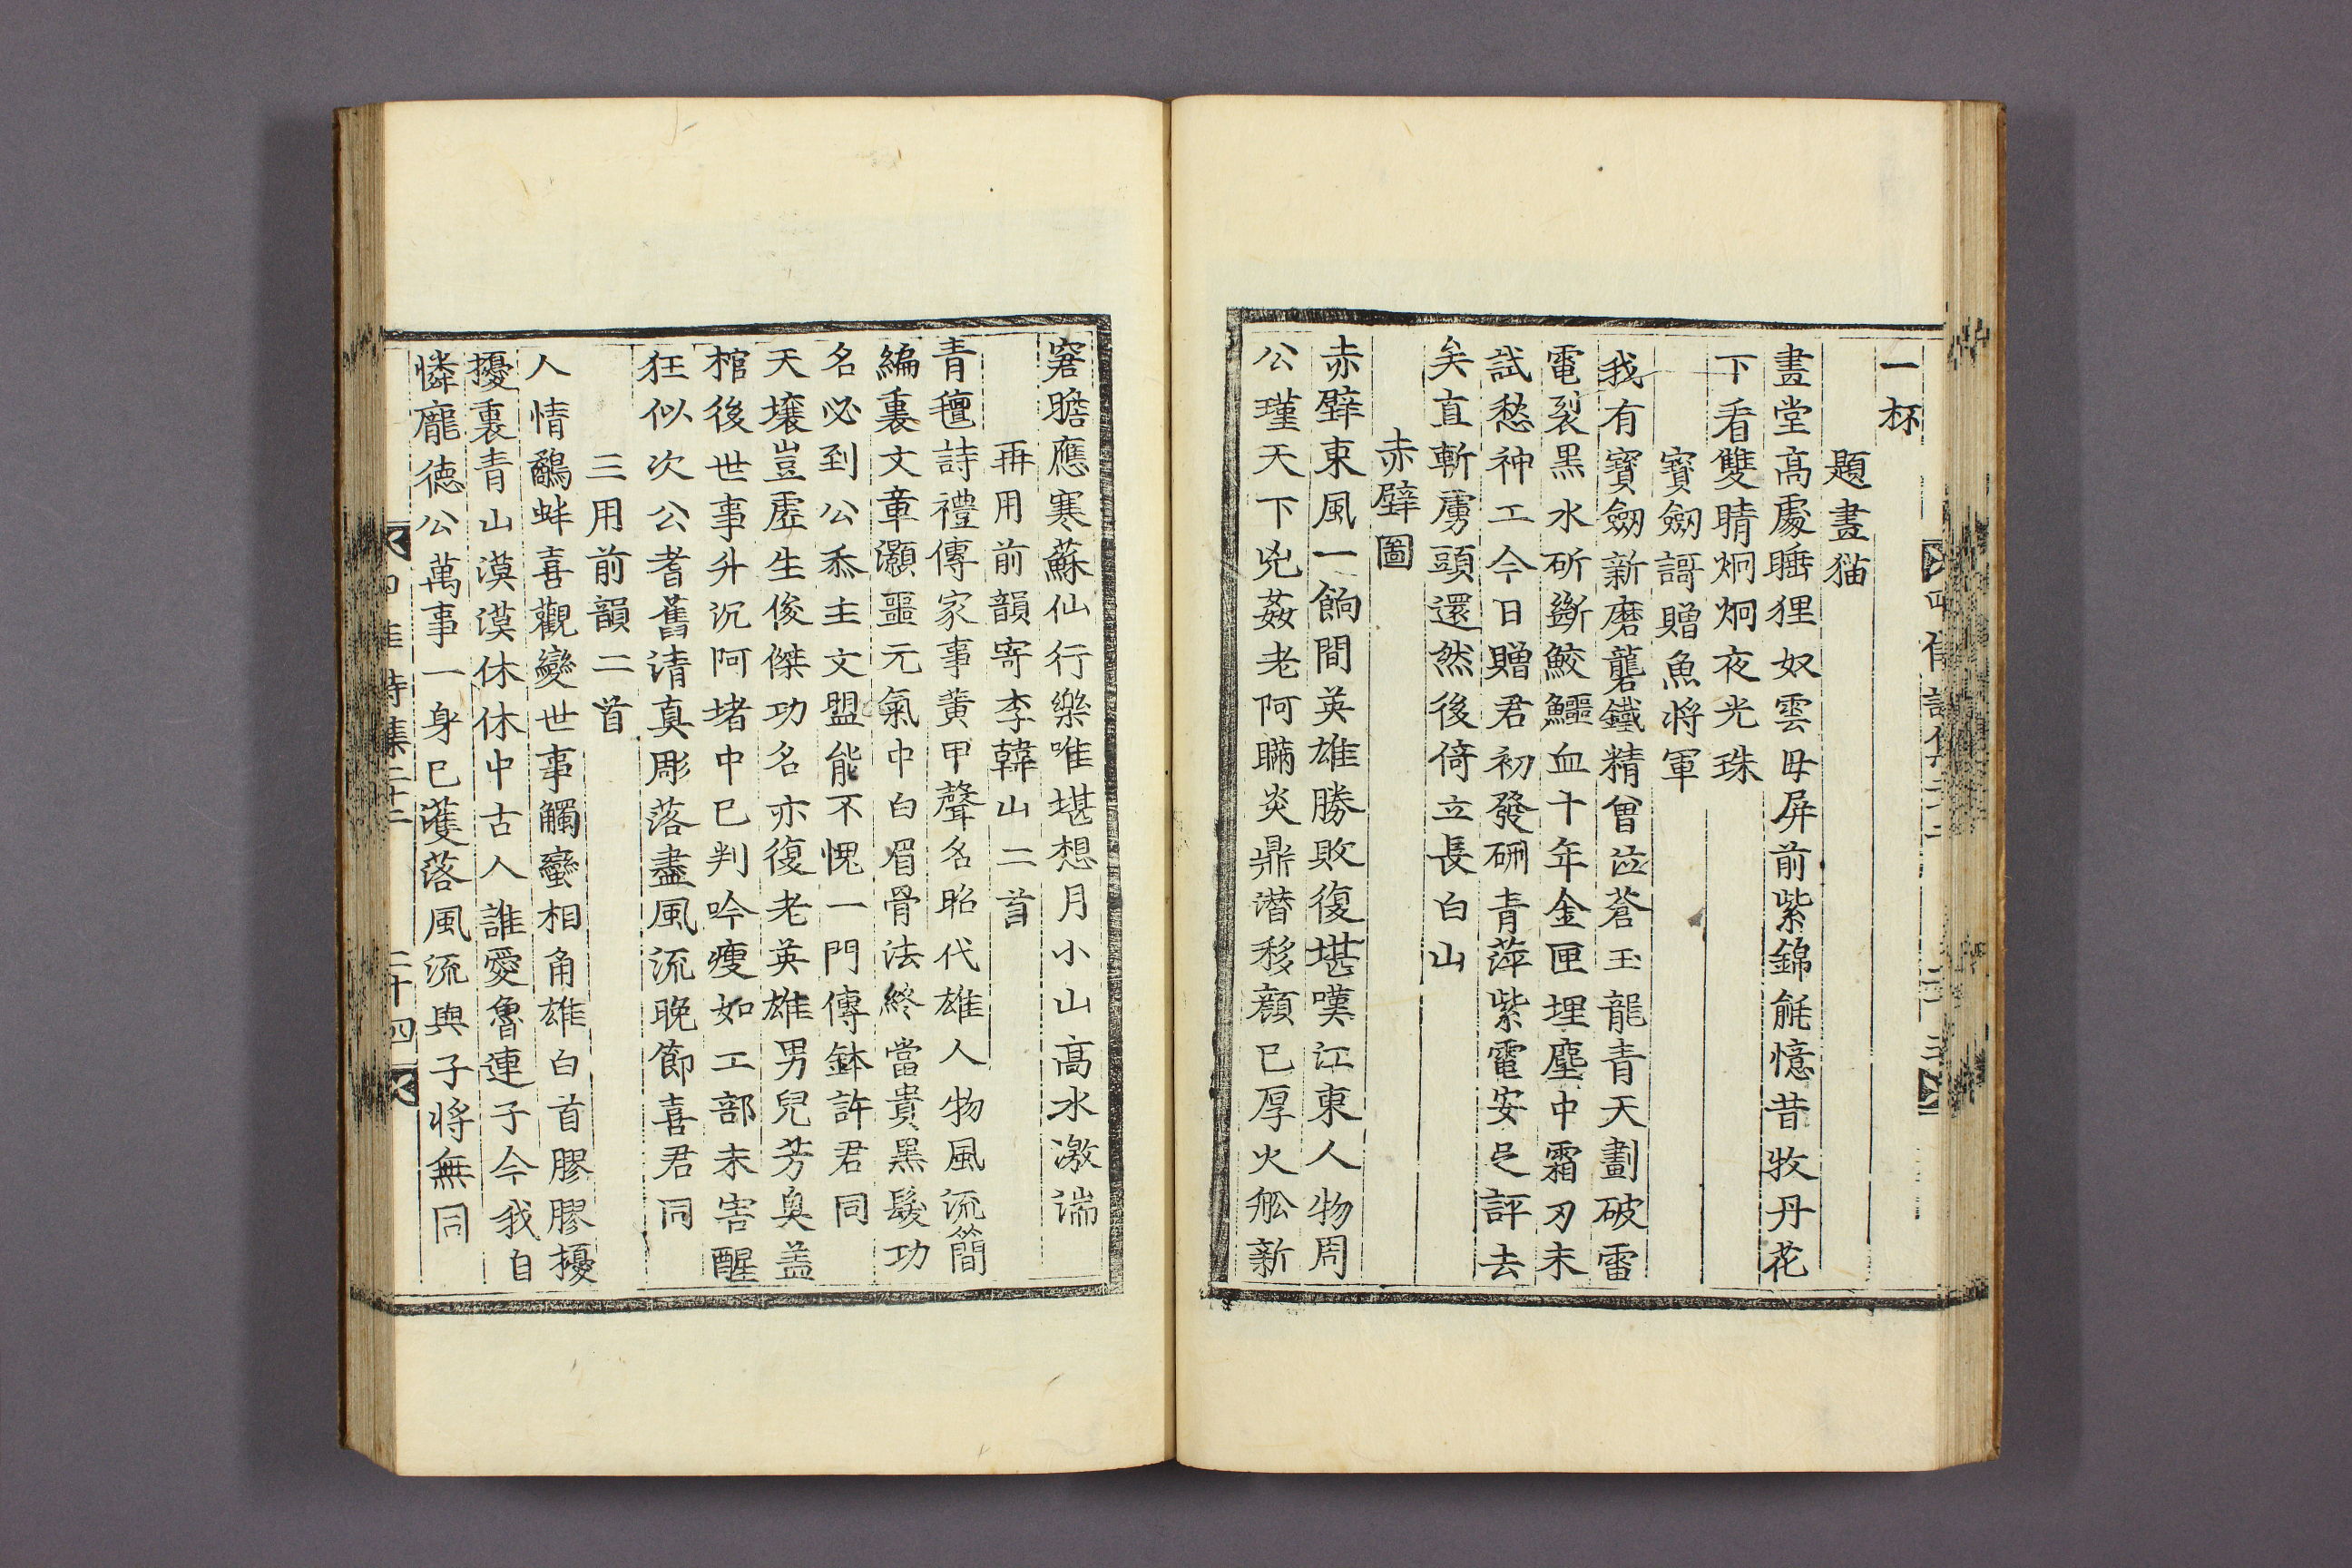 一杯
題畫猫
畫堂高處睡狸奴雲母屛前紫錦毹憶昔牧丹花
下看雙睛炯炯夜光珠
寳劒謌贈魚將軍
我有寳劒新磨礲鐵精曾泣蒼玉龍青天劃破雷
電裂黒水斫斷鮫鱷血十年金匣埋塵中霜刃未
試愁神工今日贈君初發硎青萍紫電安足評去
矣直斬虜頭還然後倚立長白山
赤壁圖
赤壁東風一餉間英雄勝敗復堪嘆江東人物周
公瑾天下兇姦老阿瞞炎鼎潜移顔已厚火舩新
窘膽應寒蘇仙行樂唯堪想月小山高水激湍
再用前韻寄李韓山二首
青氊詩禮傳家事黃甲聲名昭代雄人物風流簡
編裏文章灝噩元氣中白眉骨法終當貴黒髮功
名必到公忝主文盟能不愧一門傳鉢許君同
天壤豈虛生俊傑功名亦復老英雄男兒芳臭盖
棺後世事升沉阿堵中已判吟瘦如工部未害醒
狂似次公耆舊淸真彫落盡風流晚節喜君同
三用前韻二首
人情鷸蚌喜觀變世事觸蠻相角雄白首膠膠擾
擾裏青山漠漠休休中古人誰愛魯連子今我自
憐龐德公萬事一身已濩落風流與子將無同
四佳詩集二十二 二十四